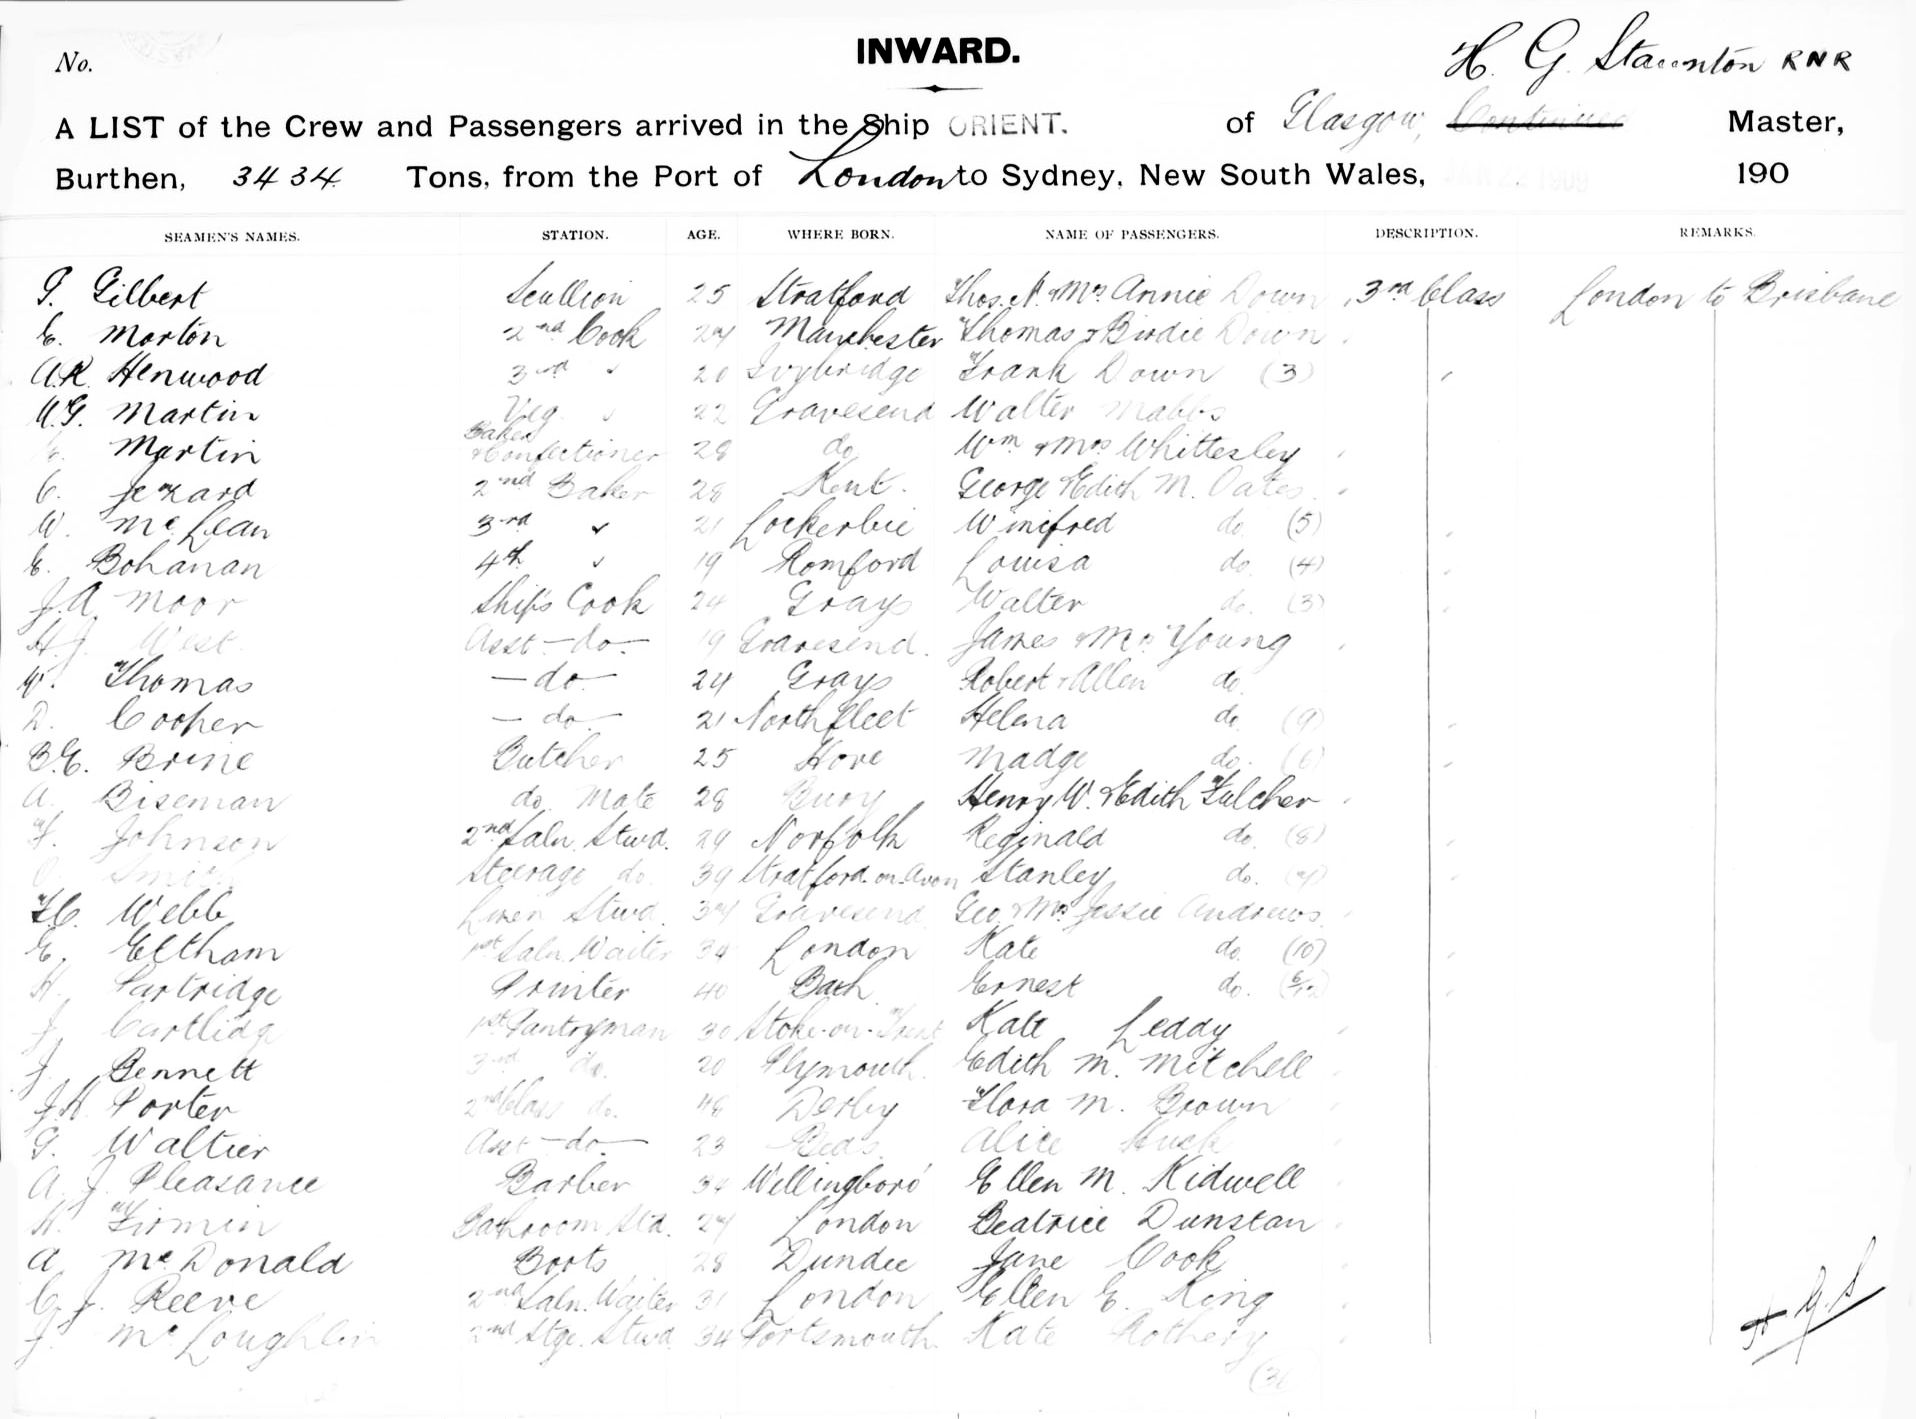 No.
INWARD.
H. G. Staunton RNR
A LIST of the Crew and Passengers arrived in the Ship ORIENT. of Glasgow, Continued Master,
Burthen, 3434 Tons, from the Port of London to Sydney, New South Wales, JAN 22 1909 190
SEAMEN'S NAMES. STATION. AGE. WHERE BORN. NAME OF PASSENGERS. DESCRIPTION. REMARKS.
G. Gilbert Scullion 25 Stratford Thos. N. & Mrs Annie Down 3rd Class London to Brisbane
E. Morton 2nd Cook 24 Manchester Thomas & Birdie Down
A.R. Henwood 3rd " 20 Ivybridge Frank Down (3)
A.G. Martin Veg. " 22 Gravesend Walter Mabbs
E. Martin Baker & Confectioner 28 do Wm & Mrs Whittesley
C. Jezzard 2nd Baker 28 Kent. George & Edith M. Oates
W. McLean 3rd " 21 Lockerbie Winifred do. (5)
E. Bohanan 4th " 19 Romford Louisa do. (4)
J.A. Moor Ship's Cook 24 Grays Walter do. (3)
H.J. West Asst-do- 19 Gravesend. James & Mrs Young
W. Thomas -do- 24 Grays Robert & Allen do.
D. Cooper -do- 21 Northfleet Helena do. (9)
B.E. Brine Butcher 25 Hove Madge do. (6)
A. Biseman do. Mate 28 Bury Henry W. & Edith Fulcher
F. Johnson 2nd Saln. Stwd. 29 Norfolk Reginald do. (8)
Smith Steerage do. 39 Stratford-on-Avon Stanley do.
F.C. Webb Linen Stwd. 34 Gravesend Geo. & Mrs Jessie Andrews
E. Eltham 1st Saln. Waiter 34 London Kate do. (10)
H. Partridge Printer 40 Bath Ernest do. (6/12)
J. Cartlidg 1st Pantryman 30 Stoke-on-Trent Kate Leddy
J. Bennett 3rd do. 20 Plymouth. Edith M. Mitchell
J.H. Porter 2nd Class do. 48 Derby Flora M. Brown
G. Waltier Asst-do- 23 Beds. Alice Huck
A. J. Pleasance Barber 34 Wellingboro' Ellen M. Kidwell
H. Firmin Bathroom Std. 24 London Beatrice Dunstan
A. McDonald Boots 28 Dundee Jane Cook
C.J. Reeve 2nd Saln. Waiter 31 London Ellen E. King
J. McLoughlin 2nd Stge. Stwd 34 Portsmouth. Kate Rothery
H G S